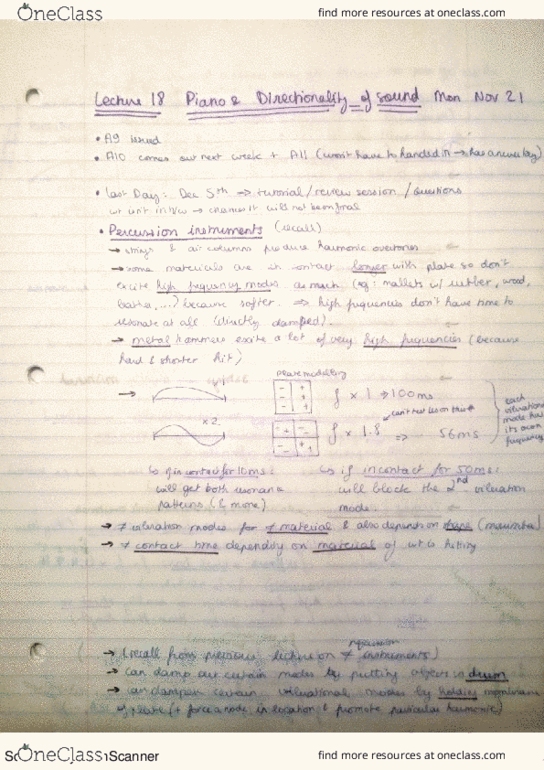 OneClass
find more resources at oneclass.com
Lecture 18 Piano & Directionality of sound Mon Nov 21
• A9 issued
• A10 comes out next week + A11 (won't have to handed in → has answer key)
• Last Day: Dec 5th → tutorial / review session / questions
→ chances it will not be on final
• Percussion instruments (recall)
→ strings & air columns produce harmonic overtones
→ some materials are in contact longer with plate so don't
excite high frequency modes as much (eg: mallets w/ rubber, wood,
...) because softer. ⇒ high frequencies don't have time to
resonate at all (directly damped).
→ metal hammers excite a lot of very high frequencies (because
hard & shorter hit)
plate modelling
→ f x 1 → 100ms
can't hit less on this
x2
f x 1.8 ⇒ 56ms
each
vibrational
mode has
its own
frequency
↳ if in contact for 10ms:
will get both
patterns (& more)
↳ if in contact for 50ms:
will block the 2nd vibration
mode.
→ ≠ vibration modes for ≠ material & also depends on shape
→ ≠ contact time depending on material of wt is hitting
→ (recall from previous lecture on ≠ percussion instruments)
→ can damp out certain modes by putting objects on drum
→ can dampen certain vibrational modes by holding membrane
of plate (+ force a node in location & promote particular harmonic)
OneClass
Scanner
find more resources at oneclass.com